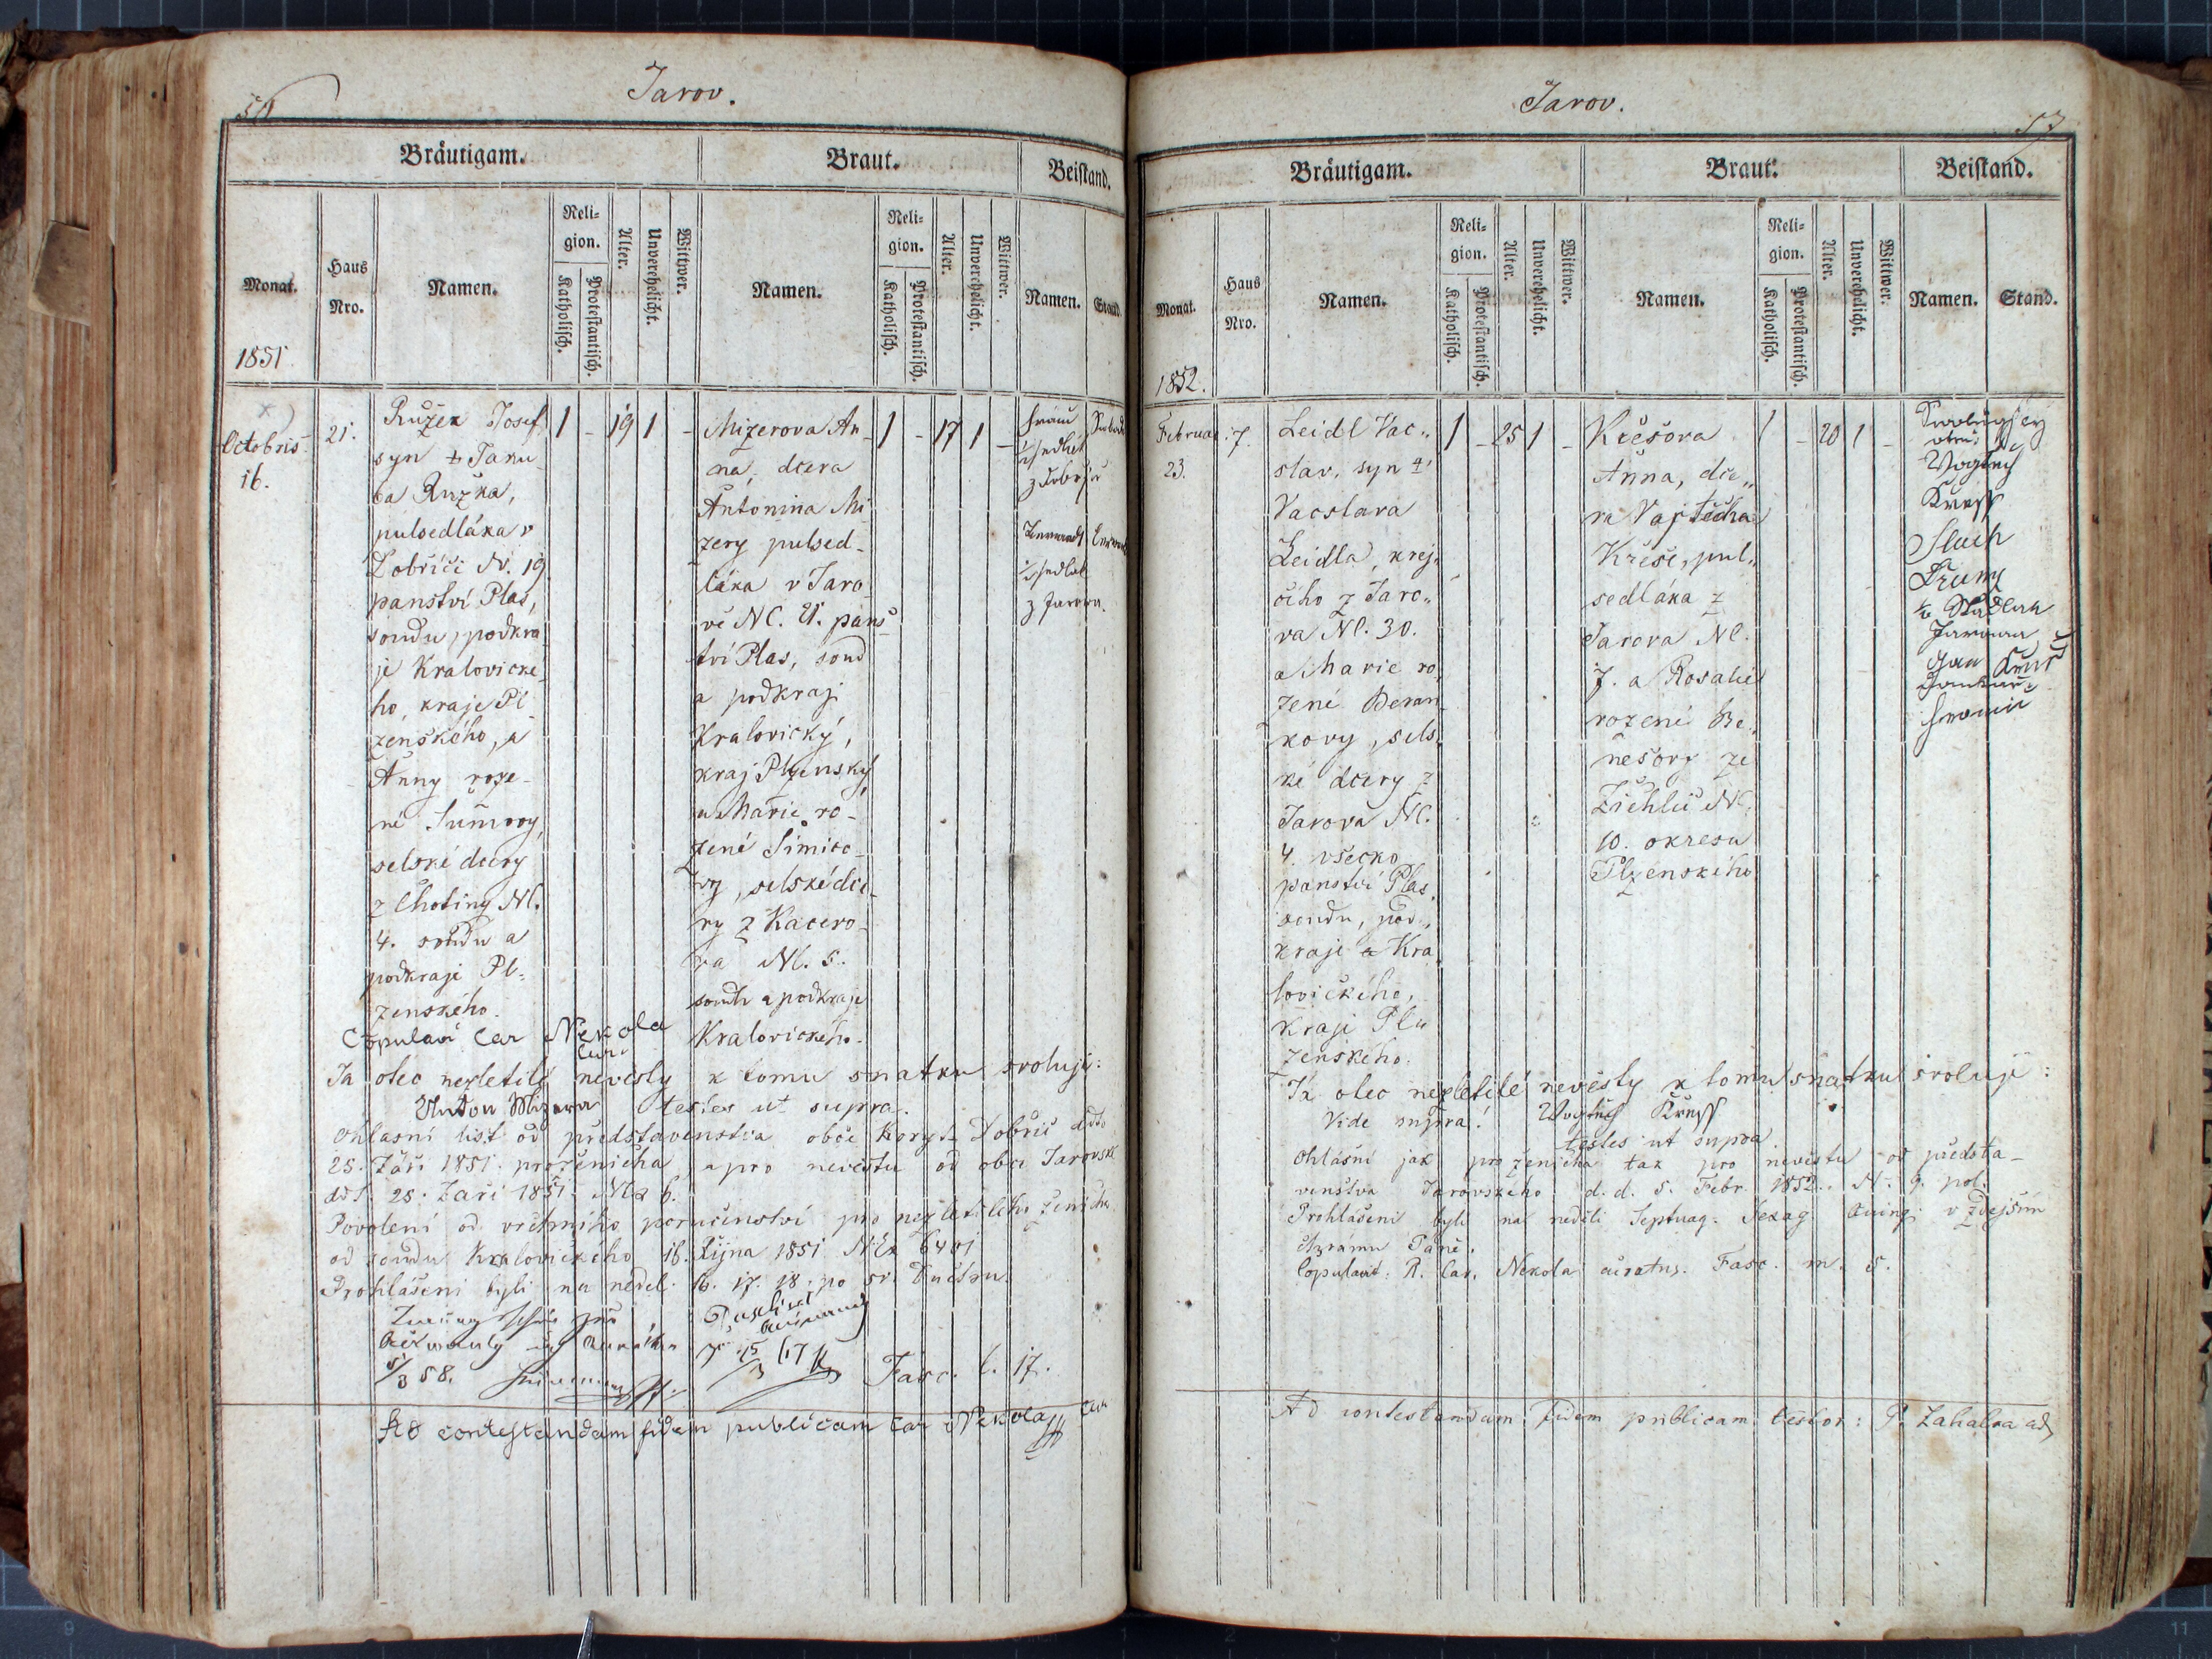 Jarov.
Bräutigam.
Braut.
Beistand.
Monat.
Haus
Nro.
Namen.
Reli-
gion.
Katholisch.
Protestantisch.
Alter.
Unverehelicht.
Wittwer.
Namen.
Reli-
gion.
Katholisch.
Protestantisch.
Alter.
Unverehelicht.
Wittwer.
Namen.
Stand.
1851
Octobris
16.
21.
Ružek Josef
syn Jaku
ba Ružka,
pulsedláka v
Dobříči N. 19
panství Plas,
soudu, podkra
je Kralovické
ho, kraje Pl
zenského, a
Anny roze-
né Šůmovy,
selské dcery
z Chotiny NC.
4. soudu a
podkraje Pl-
zenského.
1 - 19 1 -
Mizerova An-
na, dcera
Antonina Mi
zery pulsed-
láka v Jaro
vě NC. 21. pans
tví Plas, soud
a podkraj
Kralovický,
kraj Plzenský
a Marie ro-
zené Šimico-
vy, selské dce-
ry z Kacero-
va NC. 5.
soudu a podkraje
Kralovického.
1 - 17 1 -
z Jarova.
Copulavi Car Nekola
Já otec nezletilé nevěsty k tomu snatku svoluji:
Anton Mizera testes ut supra.
Ohlasní list od představenstva obce Koryt Dobříč ddto
25. Září 1851. pro ženicha, a pro nevěstu od obce Jarovsk
ddt. 28. Září 1851 6.
Povolení od vrchního poručenství pro nezletilého ženicha
od soudu Kralovického 16. Října 1851 6401
Prohlášeni byli na neděl. 16. 17. 18. po sv. Duchu.
Fasc. l. 17.
Ad contestandam fidem publicam Car Nekola
Jarov.
57
Bräutigam.
Braut.
Beistand.
Monat.
Haus
Nro.
Namen.
Reli-
gion.
Katholisch.
Protestantisch.
Alter.
Unverehelicht.
Wittwer.
Namen.
Reli-
gion.
Katholisch.
Protestantisch.
Alter.
Unverehelicht.
Wittwer.
Namen.
Stand.
1852.
Februar
23.
7.
Leidl Vac„
slav, syn
Vacslava
Leidla, krej„
čího z Jaro„
va NC. 30.
a Marie ro
zené Beran
kovy, sels
ké dcery z
Jarova NC.
4. všecko
panství Plas,
soudu, pod„
kraje Kra
lovického,
kraje Pl
zenského.
1 - 25 1 -
Křešova
Anna, dce„
ra Vojtěcha
Křeše, pul„
sedláka z
Jarova NC.
7. a Rosalie
rozené Be„
nešovy ze
Žichlic NC.
10. okresu
Plzenského
1 - 20 1 -
Jan
Já otec nezletilé nevěsty k tomu snatku svoluji:
Vide supra!
testes ut supra.
Ohlášní jak pro ženicha tak pro nevěstu od předsta-
venstva Jarovského d. d. 5. Febr. 1852. N. 9. pol.
Prohlášeni byli na neděli Septuag. Sexag. Quinq. v zdejším
chrámu Páně.
Copulavit: R. Car. Nekola curatus. Fasc. m. 5.
Ad contestandam fidem publicam testor: P. Zahalka